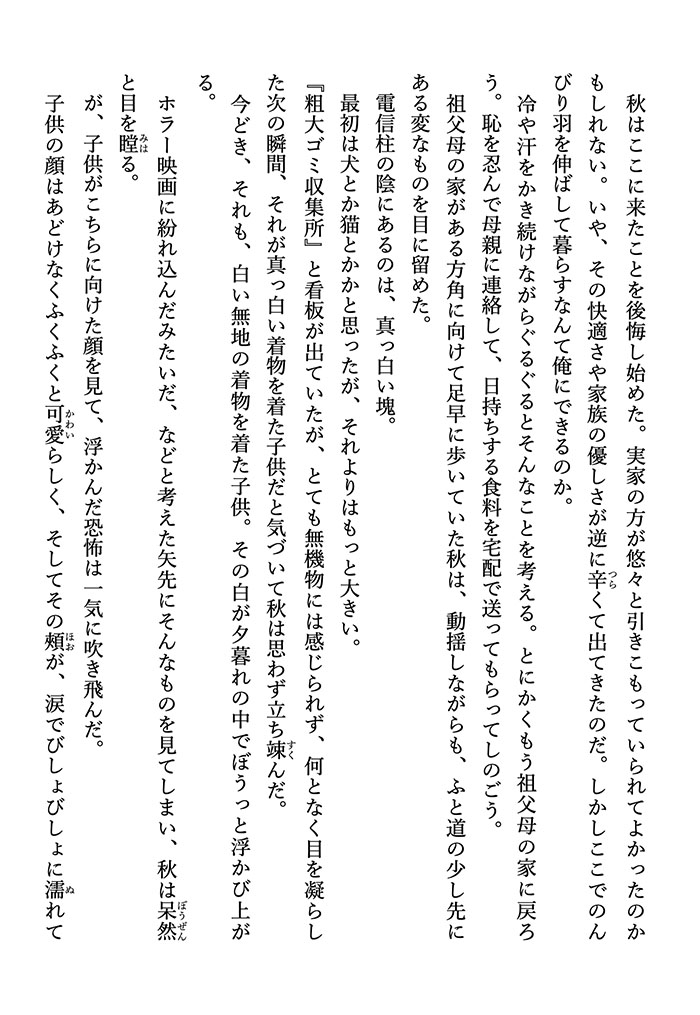 秋はここに来たことを後悔し始めた。実家の方が悠々と引きこもっていられてよかったのか
もしれない。いや、その快適さや家族の優しさが逆に辛くて出てきたのだ。しかしここでのん
びり羽を伸ばして暮らすなんて俺にできるのか。
冷や汗をかき続けながらぐるぐるとそんなことを考える。とにかくもう祖父母の家に戻ろ
う。恥を忍んで母親に連絡して、日持ちする食料を宅配で送ってもらってしのごう。
祖父母の家がある方角に向けて足早に歩いていた秋は、動揺しながらも、ふと道の少し先に
ある変なものを目に留めた。
電信柱の陰にあるのは、真っ白い塊。
最初は犬とか猫とかかと思ったが、それよりはもっと大きい。
『粗大ゴミ収集所』と看板が出ていたが、とても無機物には感じられず、何となく目を凝らし
た次の瞬間、それが真っ白い着物を着た子供だと気づいて秋は思わず立ち竦んだ。
今どき、それも、白い無地の着物を着た子供。その白が夕暮れの中でぼうっと浮かび上が
る。
ホラー映画に紛れ込んだみたいだ、などと考えた矢先にそんなものを見てしまい、秋は呆然
と目を瞠る。
が、子供がこちらに向けた顔を見て、浮かんだ恐怖は一気に吹き飛んだ。
子供の顔はあどけなくふくふくと可愛らしく、そしてその頰が、涙でびしょびしょに濡れて
つら
すく
ぼうぜん
みは
かわい
ほお
ぬ